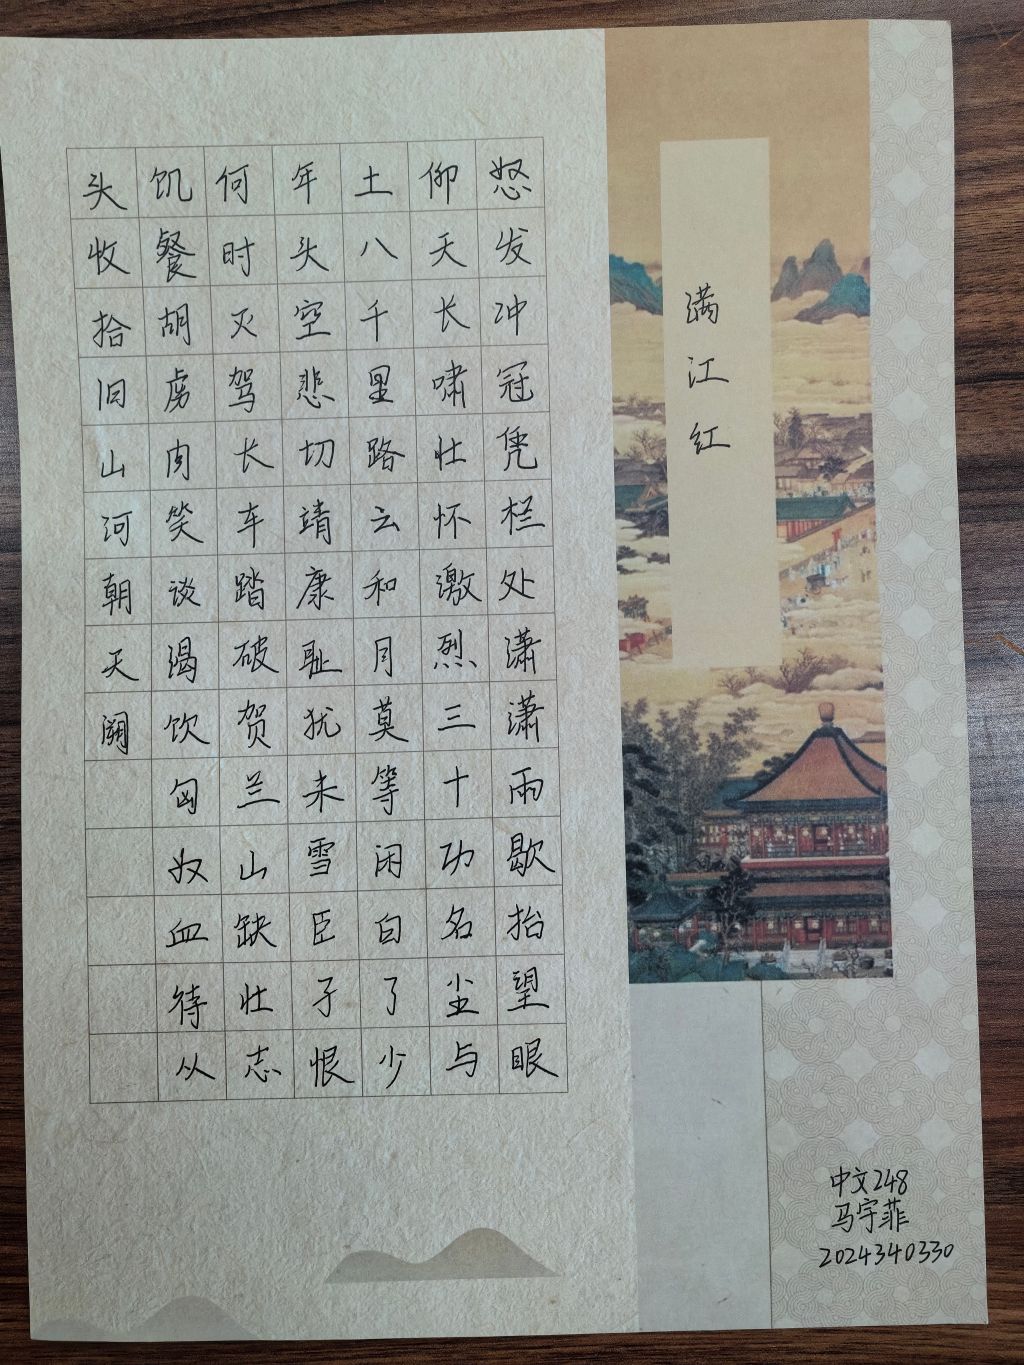 满江红
怒发冲冠凭栏处潇潇雨歇抬望眼
仰天长啸壮怀激烈三十功名尘与
土八千里路云和月莫等闲白了少
年头空悲切靖康耻犹未雪臣子恨
何时灭驾长车踏破贺兰山缺壮志
饥餐胡虏肉笑谈渴饮匈奴血待从
头收拾旧山河朝天阙
中文248
马宇菲
2024340330